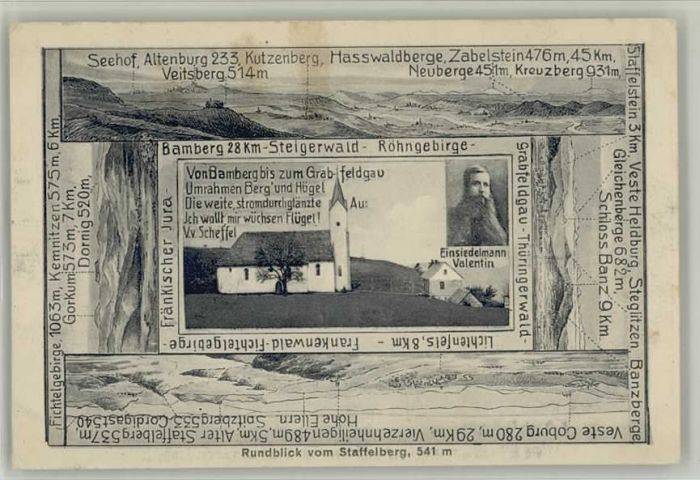 Seehof, Altenburg 233, Kutzenberg, Hasswaldberge, Zabelstein 476 m, 45 Km,
Veitsberg 514 m Neuberge 451 m, Kreuzberg 931 m,
Staffelstein 3 Km Veste Heldburg, Steglitzen Banzberge
Gleichenberge 682 m,
Schloss Banz 9 Km
Bamberg 28 Km - Steigerwald - Röhngebirge -
Grabfeldgau - Thüringerwald -
Von Bamberg bis zum Grabfeldgau
Umrahmen Berg' und Hügel
Die weite, stromdurchglänzte Au:
Ich wollt mir wüchsen Flügel!
V. v Scheffel
Einsiedelmann
Valentin
Lichtenfels, 8 Km - Frankenwald - Fichtelgebirge -
Fränkischer Jura -
Veste Coburg 280 m, 29 Km, Vierzehnheiligen 489 m, 5 Km, Alter Staffelberg 537 m,
Hohe Ellern. Spitzberg 553, Cordigast 540
Fichtelgebirge, 1063 m, Kemnitzen 575 m, 6 Km,
Gorkum 573 m, 7 Km,
Dornig 520 m,
Rundblick vom Staffelberg, 541 m